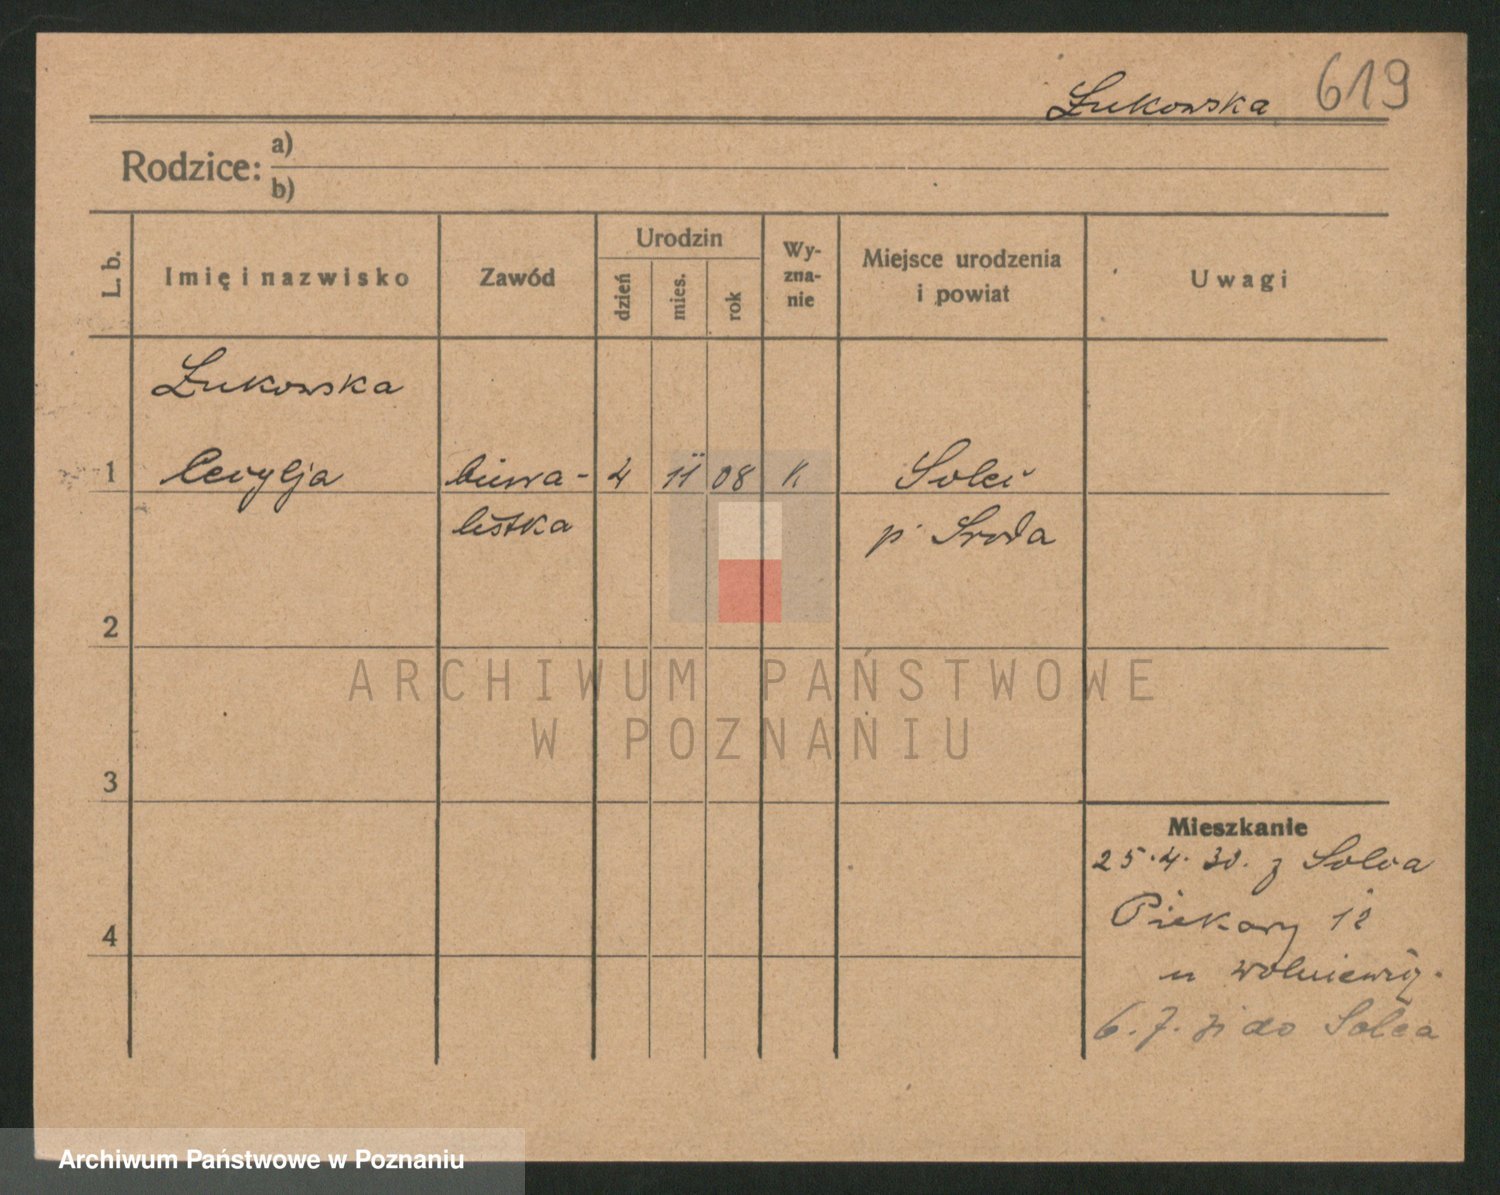 Żukowska 619
Rodzice: a)
b)
L. b. Imię i nazwisko Zawód Urodzin dzień mies. rok Wy-zna-nie Miejsce urodzenia i powiat Uwagi
Żukowska
1 Cecylja biura- 4 11 08 K. Soleć
listka p. Środa
2
3
4
Mieszkanie
25.4.30. z Solca
Piekary 12
u
6.7. do Solca
ARCHIWUM PAŃSTWOWE
W POZNANIU
Archiwum Państwowe w Poznaniu